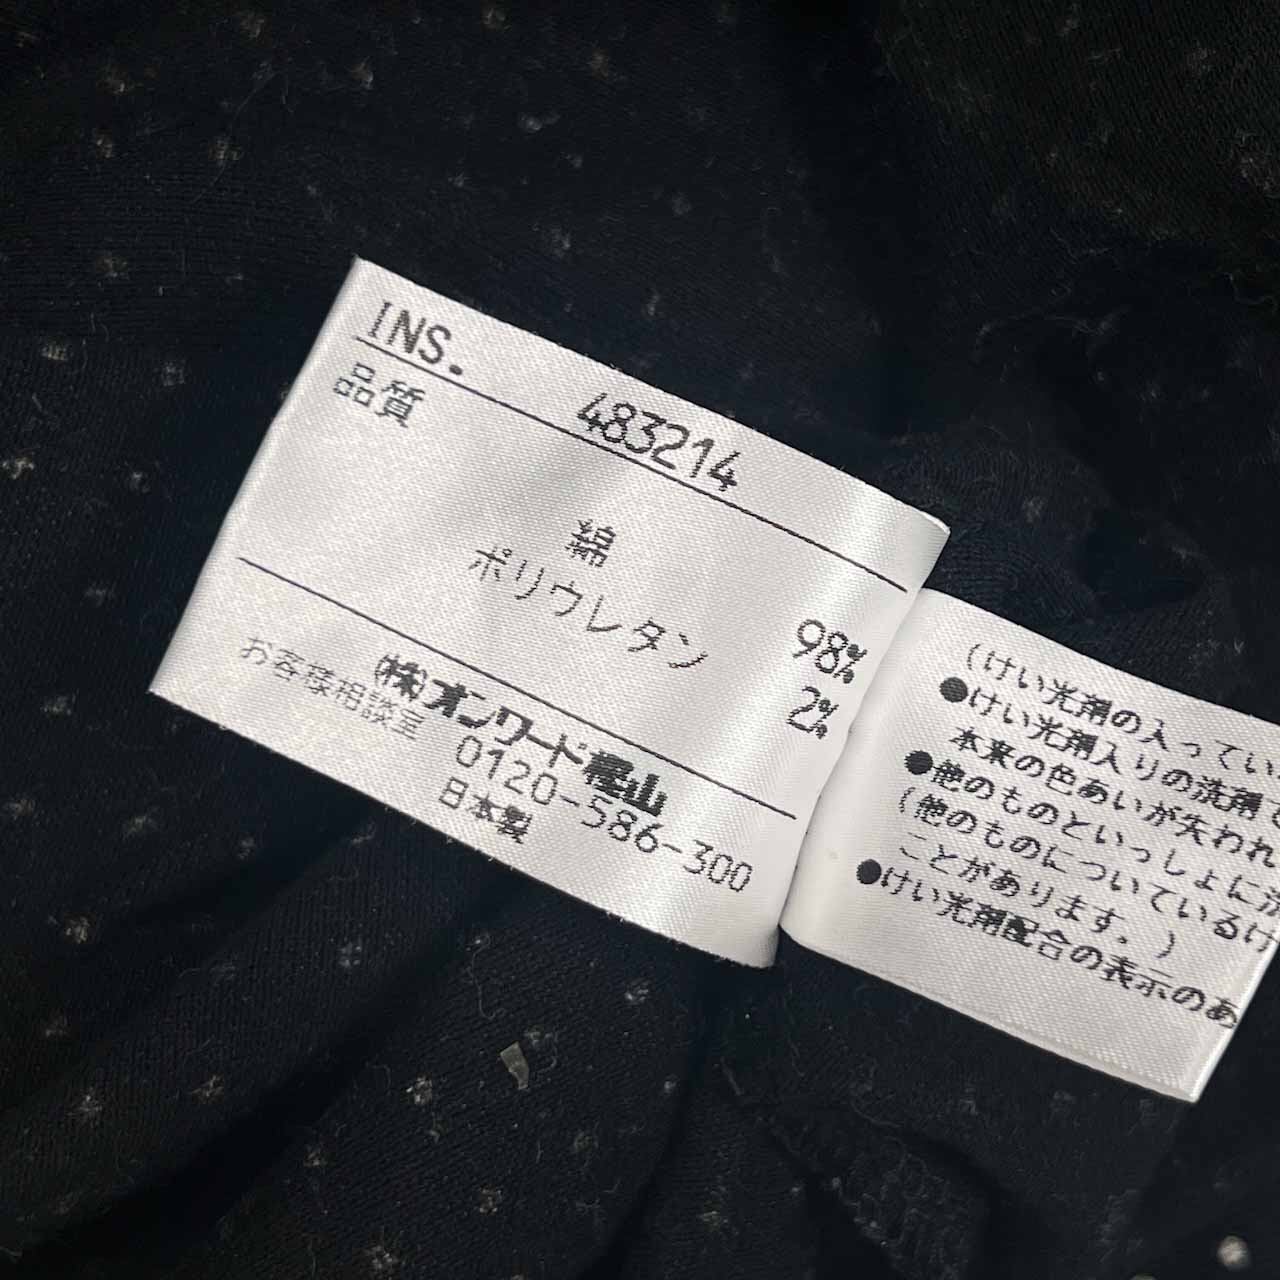 INS. 483214
品質
綿 98%
ポリウレタン 2%
(株)オンワード樫山
お客様相談室 0120-586-300
日本製
(けい光剤の入ってい
●けい光剤入りの洗剤で
本来の色あいが失われ
●他のものといっしょに洗
(他のものについているけ
ことがあります。)
●けい光剤配合の表示のあ